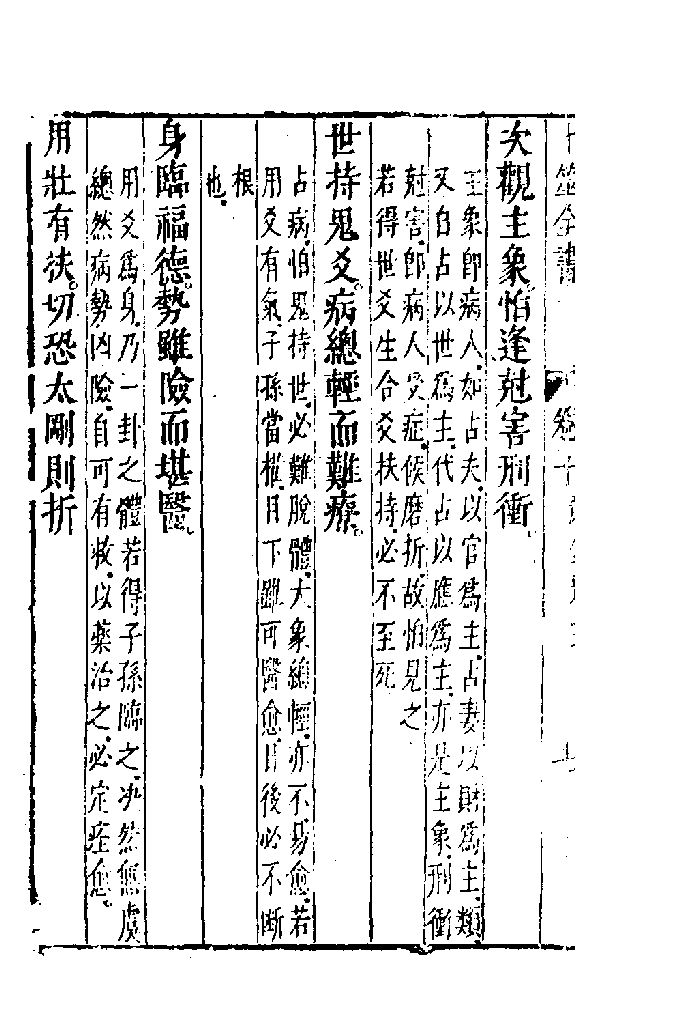 卜筮全書
卷十
次觀主象怕逢尅害刑衝
主象卽病人如占夫以官爲主占妻以財爲主類
又自占以世爲主代占以應爲主亦是主象刑衝
尅害卽病人受症候磨折故怕見之
若得世爻生合爻扶持必不至死
世持鬼爻病總輕而難療
占病怕鬼持世必難脫體大象總輕亦不易愈若
用爻有氣子孫當權目下雖可醫愈日後必不斷
根
也
身臨福德勢雖險而堪醫
用爻爲身乃一卦之體若得子孫臨之決然無虞
總然病勢凶險自可有救以藥治之必定痊愈
用壯有扶切恐太剛則折